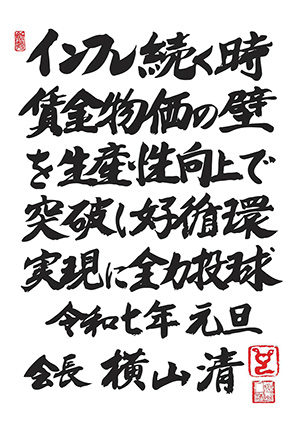 インフレ続く時
賃金物価の壁
を生産性向上で
突破し好循環
実現に全力投球
令和七年 元旦
会長 横山清